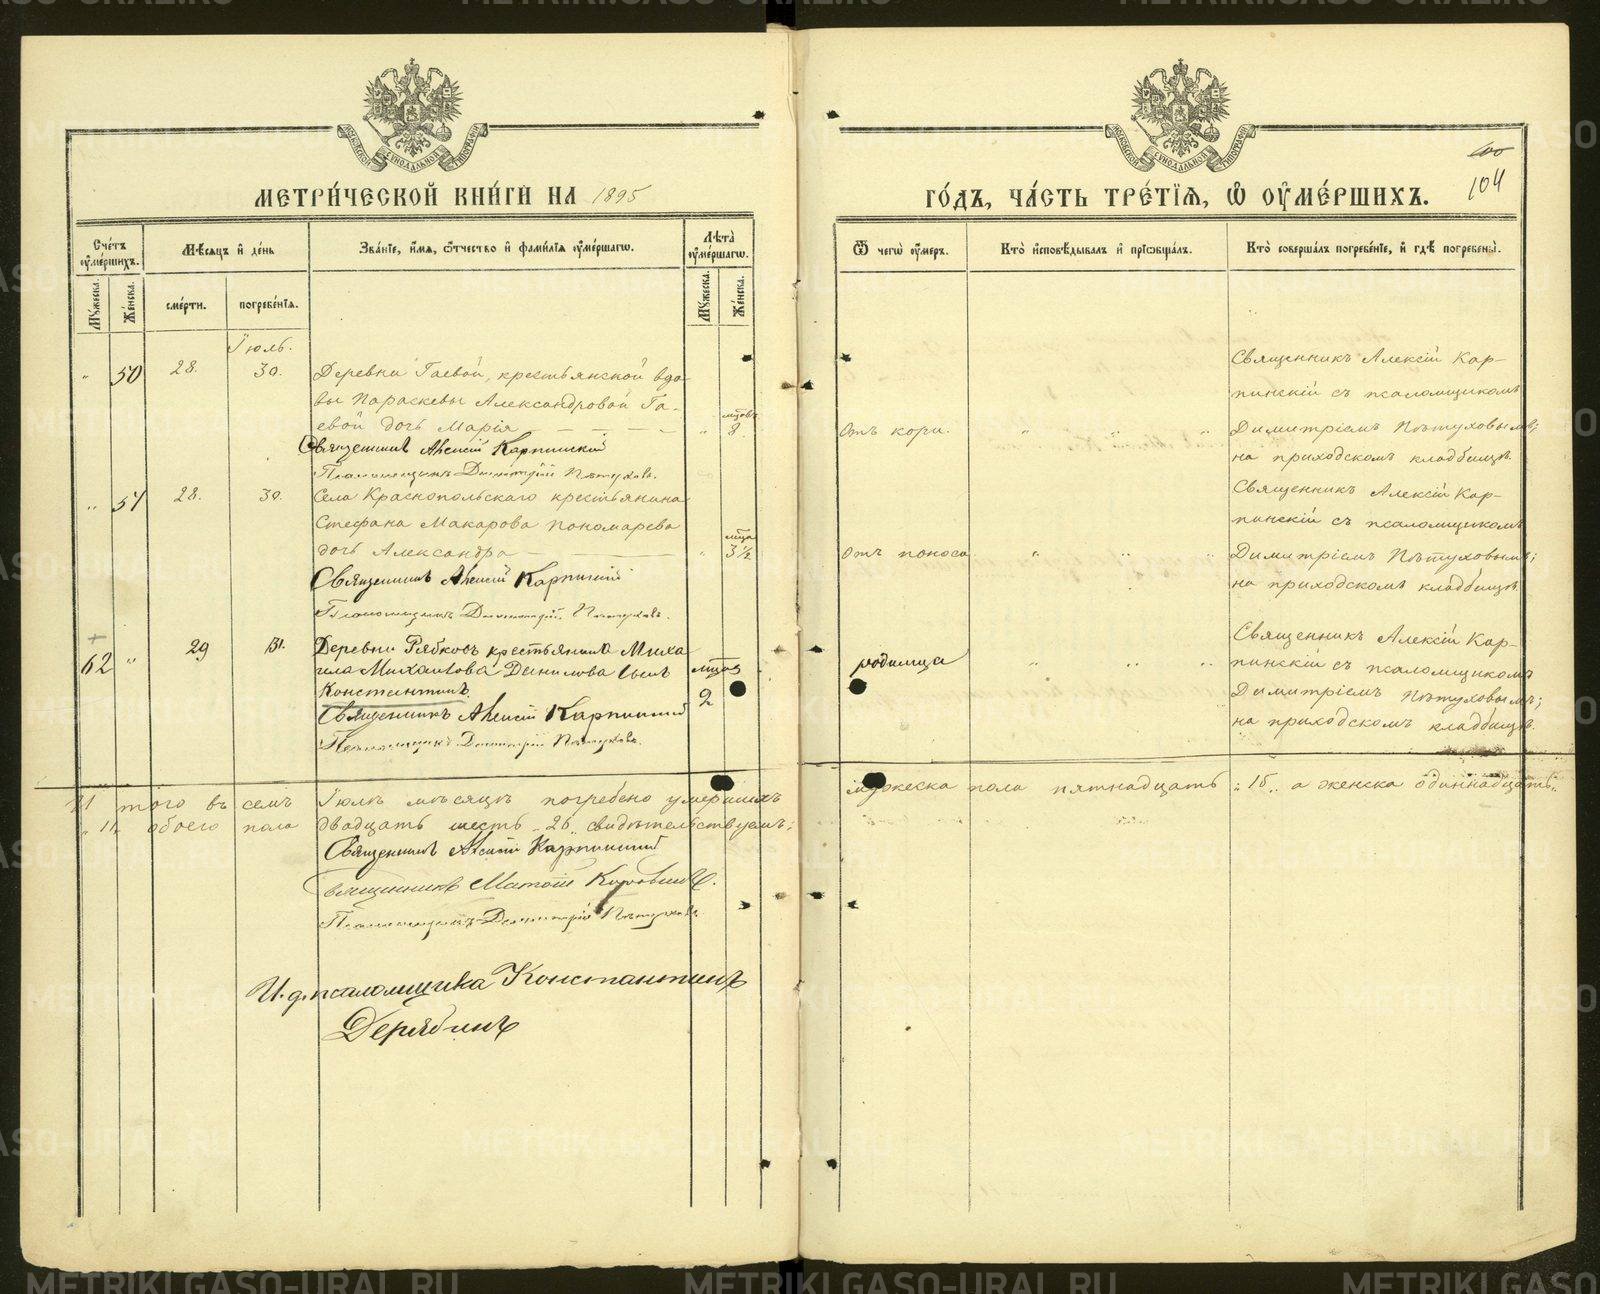 МЕТРИЧЕСКОЙ КНИГИ НА 1895
ГОДЪ, ЧАСТЬ ТРЕТІЯ, Ѿ ОУМЕРШИХЪ.
104
Счетъ оумершихъ.
Мѣсяцъ и день
Званіе, имя, ѿчество и фамилія оумершагѡ.
Лѣта оумершагѡ.
Ѿ чегѡ оумеръ.
Кто исповѣдывалъ и пріѡбщалъ.
Кто совершалъ погребеніе, и гдѣ погребены.
Мужеска.
Женска.
смерти.
погребенія.
Мужеска.
Женска.
Іюль.
50 28. 30. Деревни Гаевой, крестьянской вдо-
вы Параскевы Александровой Га-
евой дочь Марія
мцовъ 8 Отъ кори.
Священникъ Алексій Кар-
пинскій съ псаломщикомъ
Димитріемъ Пѣтуховымъ;
на приходскомъ кладбищѣ.
Священникъ Алексій Карпинскій
Псаломщикъ Димитрій Пѣтуховъ.
51 28. 30. Села Краснопольскаго крестьянина
Стефана Макарова Пономарева
дочь Александра
мца 3½ Отъ поноса
Священникъ Алексій Кар-
пинскій съ псаломщикомъ
Димитріемъ Пѣтуховымъ;
на приходскомъ кладбищѣ.
Священникъ Алексій Карпинскій
Псаломщикъ Димитрій Пѣтуховъ.
62 29 31. Деревни Рябковъ крестьянина Миха
ила Михайлова Данилова сынъ
Константинъ.
2 родимца
Священникъ Алексій Кар-
пинскій съ псаломщикомъ
Димитріемъ Пѣтуховымъ;
на приходскомъ кладбищѣ.
Священникъ Алексій Карпинскій
Псаломщикъ Димитрій Пѣтуховъ.
того въ семъ Іюлѣ мѣсяцѣ погребено умершихъ мужеска пола пятнадцать „15„ а женска одиннадцать„
„11„ обоего пола двадцать шесть „26„ свидѣтельствуемъ;
Священникъ Алексій Карпинскій
Священникъ Коровинъ.
Псаломщикъ Димитрій Пѣтуховъ.
И. д. псаломщика Константинъ
Дерябинъ
METRIKI.GASO-URAL.RU